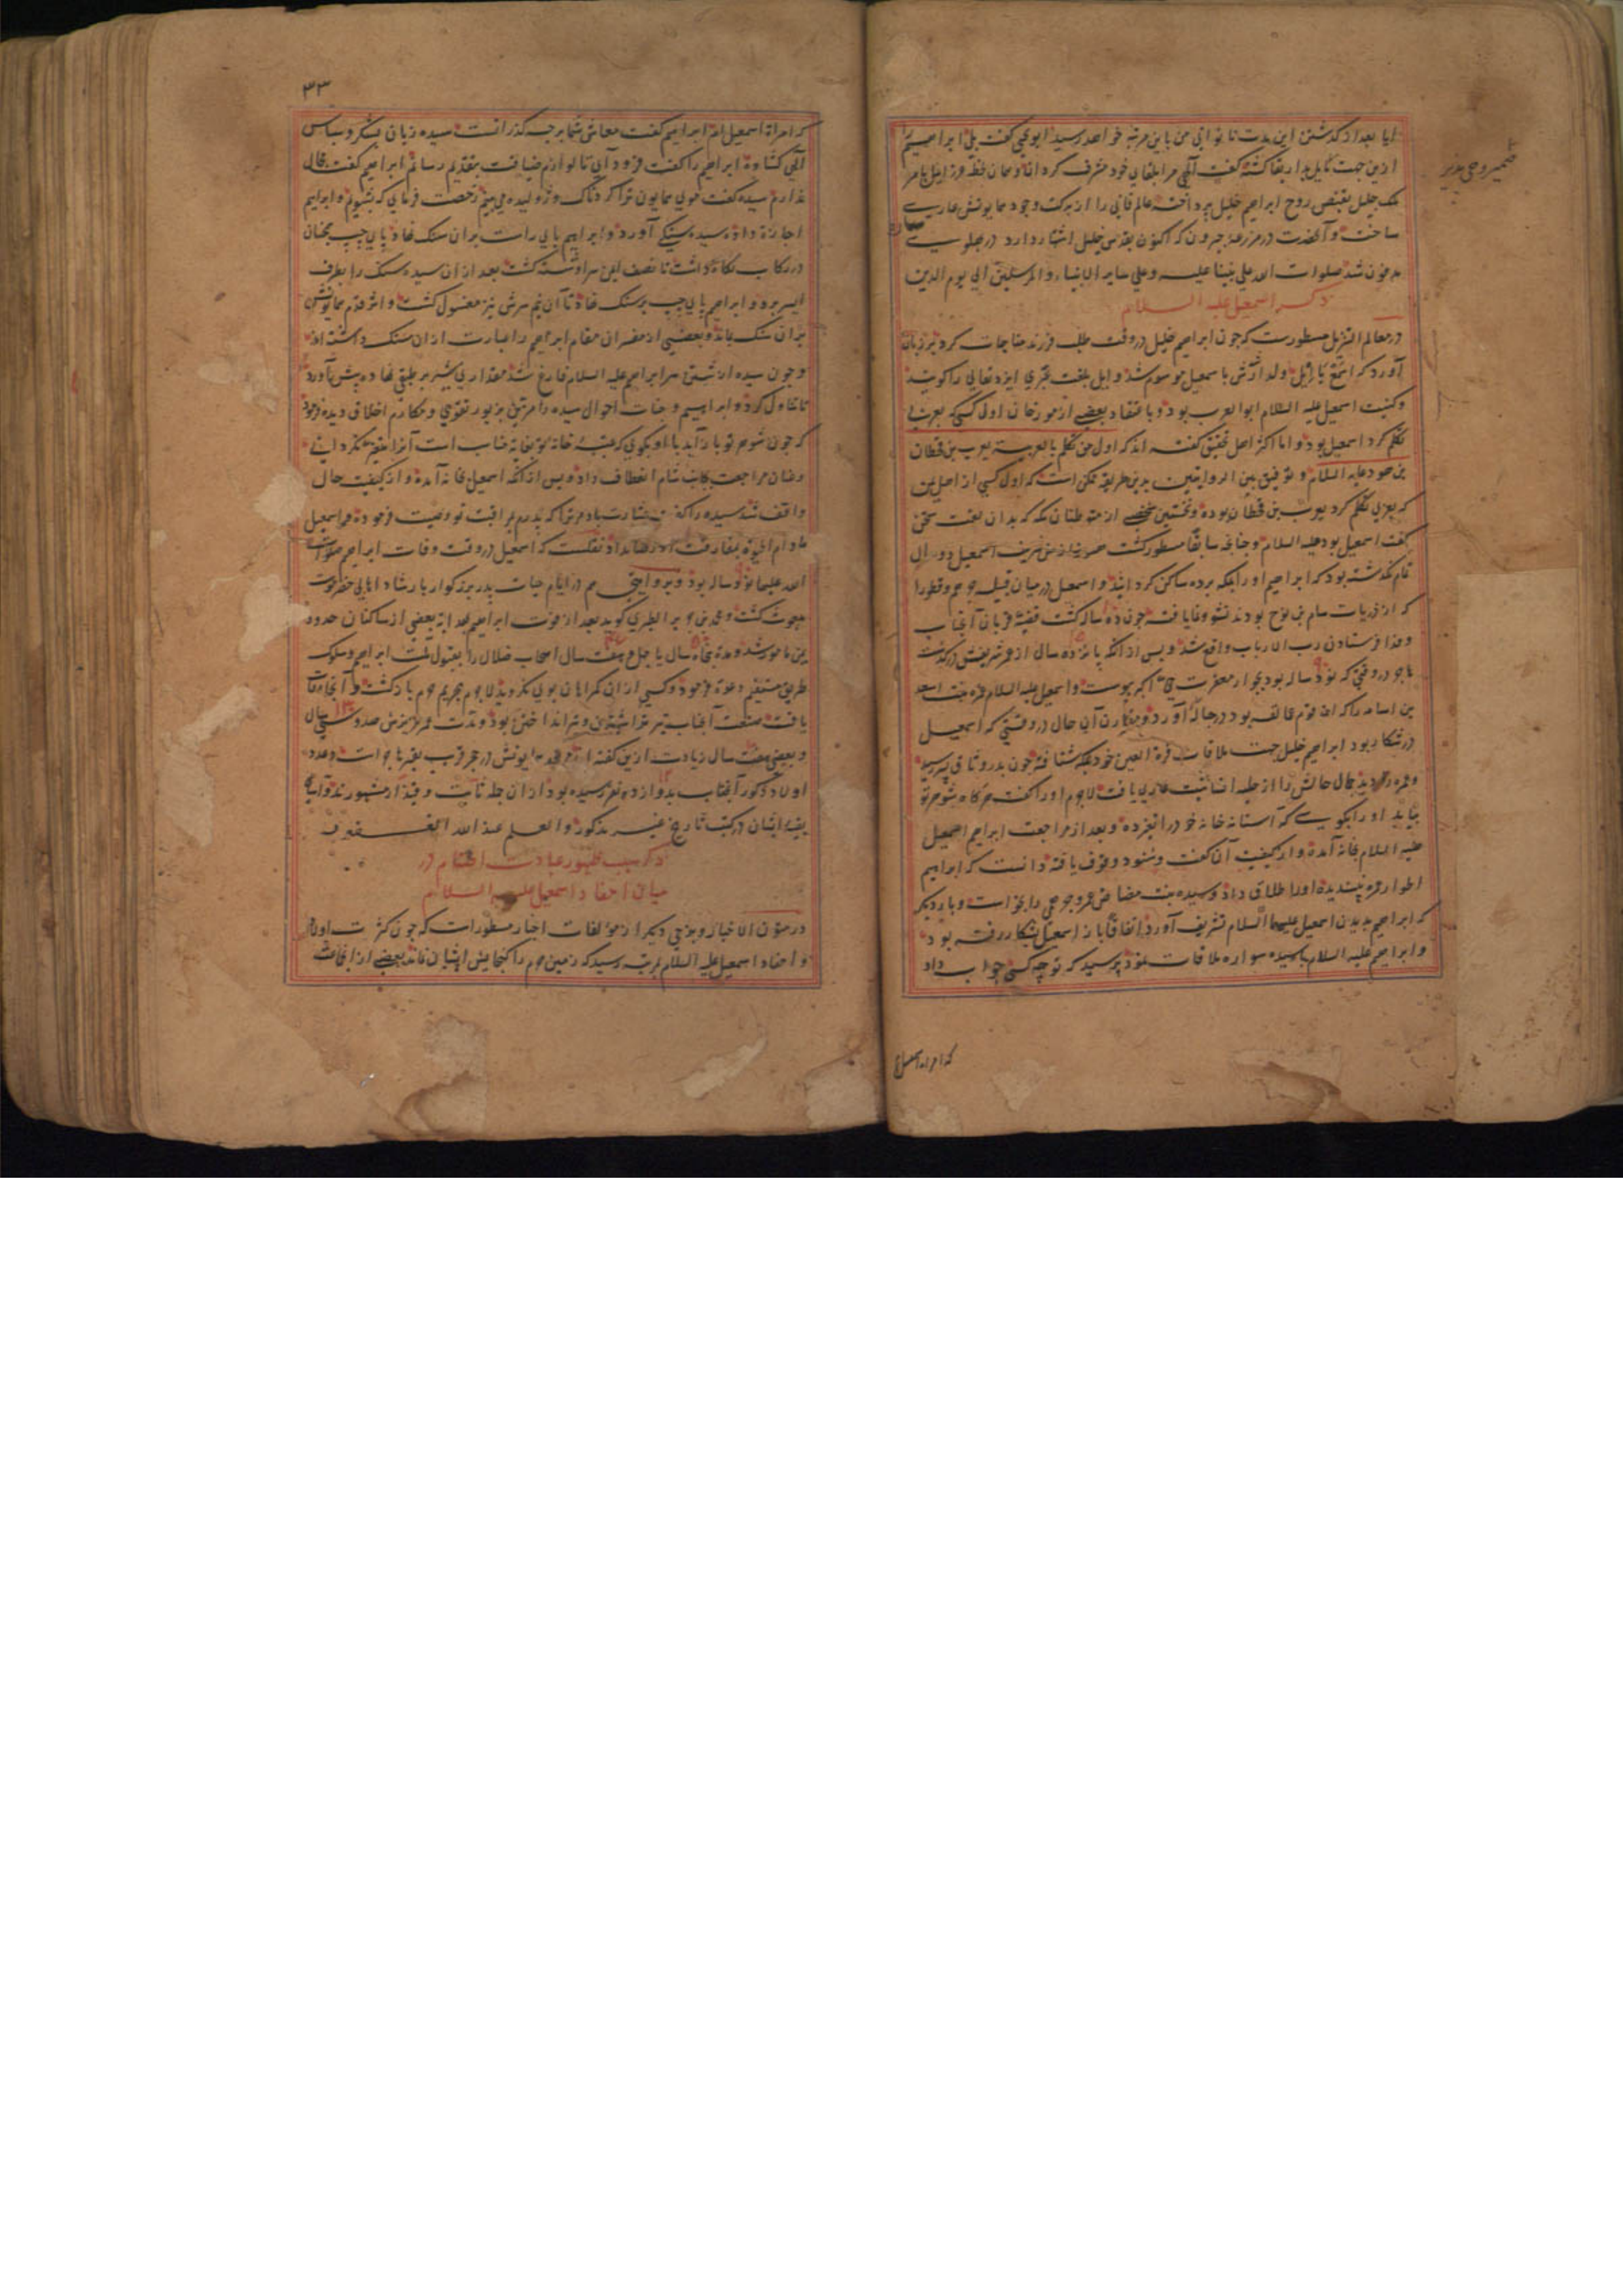 آیا بعد از کذشتن این مدت ناتوانی من باین مرتبه خواهد رسید ابویحیی کفت بلی ابراهیم را
ازین جهت مایل بدار بقا کشته کفت الهی مرا بلقای خود مشرف کردان و همان لحظه عزرائیل بامر
ملک جلیل بقبض روح ابراهیم خلیل پرداخته عالم فانی را از برکت وجود همایونش عاری
ساخت و آنحضرت در مزرعه جبرون که اکنون بقدس خلیل اشتهار دارد در پهلوی ساره
مدفون شد صلوات الله علی نبینا علیه و علی سایر الانبیاء و المرسلین الی یوم الدین
ذکر اسمعیل علیه السلام
در معالم التنزیل مسطورست که چون ابراهیم خلیل در وقت طلب فرزند مناجات کرد بر زبان
آورد که اسمع یا ایل ولد ارشدش باسمعیل موسوم شد و ایل بلغت عبری ایزد تعالی را کویند
و کنیت اسمعیل علیه السلام ابو العرب بود و باعتقاد بعضی از مورخان اول کسی که بعربی
تکلم کرد اسمعیل بود و اما اکثر اهل تحقیق کفته اند که اول من تکلم بالعربیه یعرب بن قحطان
بن هود علیه السلام و توفیق بین الروایتین بدین طریق ممکن است که اول کسی از اهل یمن
که بعربی تکلم کرد یعرب بن قحطان بوده و نخستین شخصی از متوطنان مکه که بدان لغت سخن
کفت اسمعیل بود علیه السلام و چنانچه سابقا مسطور کشت هنوز از سن شریف اسمعیل دو سال
تمام نکذشته بود که ابراهیم او را بمکه برده ساکن کردانید و اسمعیل در میان قبیله جرهم و قطورا
که از ذریات سام بن نوح بودند نشو و نما یافته چون ده ساله کشت قضیه قربان آنجناب
و فدا فرستادن رب الارباب واقع شد و پس از آنکه پانزده سال از عمر شریفش درکذشت
هاجر در وقتی که نود ساله بود بجوار مغفرت حی اکبر پیوست و اسمعیل علیه السلام عمره بنت اسعد
بن اسامه را که از قوم عمالقه بود در حباله آورد و مقارن آن حال در وقتی که اسمعیل
در شکار بود ابراهیم خلیل جهت ملاقات قرة العین خود بمکه شتافته چون بدر وثاق پسر رسید
و عمره را دید جمال حالش را از حلیه انسانیت عاری یافت لاجرم او را کفت هرکاه شوهر تو
بیاید او را بکوی که آستانه خانه خود را تغیر ده و بعد از مراجعت ابراهیم اسمعیل
علیه السلام بخانه آمده و از کیفیت آن کفت و شنود وقوف یافته دانست که ابراهیم
اطوار عمره نپسندیده او را طلاق داد و سیده بنت مضاض بن عمرو جرهمی را بخواست و بار دیکر
که ابراهیم بدیدن اسمعیل علیهما السلام تشریف آورد اتفاقا باز اسمعیل بشکار رفته بود
و ابراهیم علیه السلام با سیده سواره ملاقات نمود پرسید که تو چه کسی جواب داد
که امراة اسمعیل
ضمیر وحی پذیر
۳۳
که امراة اسمعیل ام ابراهیم کفت معاش شما بر چه کذرانست سیده زبان بشکر و سپاس
الهی کشاده ابراهیم را کفت فرود آی تا لوازم ضیافت بتقدیم رسانم ابراهیم کفت مجال
ندارم سیده کفت موی همایون ترا کردناک و ژولیده می بینم رخصت فرمای که بشویم و ابراهیم
اجازة داده سیده سنکی آورد و ابراهیم پای راست بران سنک نهاد پای چپ همچنان
در رکاب نکاه داشت تا نصف ایمن سر او شسته کشت بعد ازان سیده سنک را بطرف
ایسر برد و ابراهیم پای چپ بر سنک نهاد تا آن نیم سرش نیز مغسول کشت و اثر قدم همایونش
بران سنک بماند و بعضی از مفسران مقام ابراهیم را عبارت ازان سنک داشته اند
و چون سیده از شستن سر ابراهیم علیه السلام فارغ شد مقداری شیر بر طبقی نهاده پیش آورد
تا تناول کرد و ابراهیم وجنات احوال سیده را مزین بزیور تقوی و مکارم اخلاق دیده فرمود
که چون شوهر تو باز آید با او بکوی که عتبه خانه تو بغایة مناسب است آنرا تغیر مکردانی
و عنان مراجعت بجانب شام انعطاف داد و پس از آنکه اسمعیل بخانه آمده و از کیفیت حال
واقف شد سیده را کفت بشارت باد مر ترا که پدرم بمراقبت تو وصیت فرموده و اسمعیل
مادام الحیوة بمفارقت او رضا نداد نقلست که اسمعیل در وقت وفات ابراهیم صلوات
الله علیهما نود ساله بود و بروایتی هم در ایام حیات پدر بزرکوار بارشاد اهالی حضرموت
مبعوث کشت و محمد بن جریر الطبری کوید بعد از فوت ابراهیم بهدایة بعضی از ساکنان حدود
یمن مامور شد و مدة پنجاه سال یا چهل و هفت سال اصحاب ضلال را بقبول ملت ابراهیم و سلوک
طریق مستقیم دعوة فرمود و کسی ازان کمراهان بوی نکروید لاجرم بحریم حرم بازکشت و آنجا وفات
یافت صنعت آنجناب تیر تراشیدن و تیر انداختن بود و مدت عمر عزیزش صد و سی سال
و بعضی هفت سال زیادت ازین کفته اند و مرقد همایونش در حجر قرب بقبر هاجر است و عدد
اولاد ذکور آنجناب بدوازده نفر رسیده بود ازان جمله ثابت و قیدار مشهورند و اسامی
بقیه ایشان در کتب تاریخ غیر مذکور و العلم عند الله الغفور
ذکر سبب ظهور عبادت اصنام در
میان احفاد اسمعیل علیه السلام
در متون الاخبار و برخی دیکر از مؤلفات اخیار مسطورات که چون کثرت اولاد
و احفاد اسمعیل علیه السلام بمرتبه رسید که زمین حرم را کنجایش ایشان نماند بعضی از انجماعت